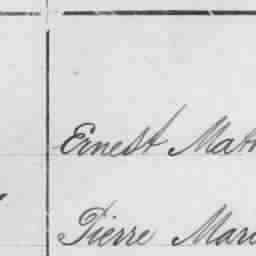 Ernest Mat
Pierre Mari